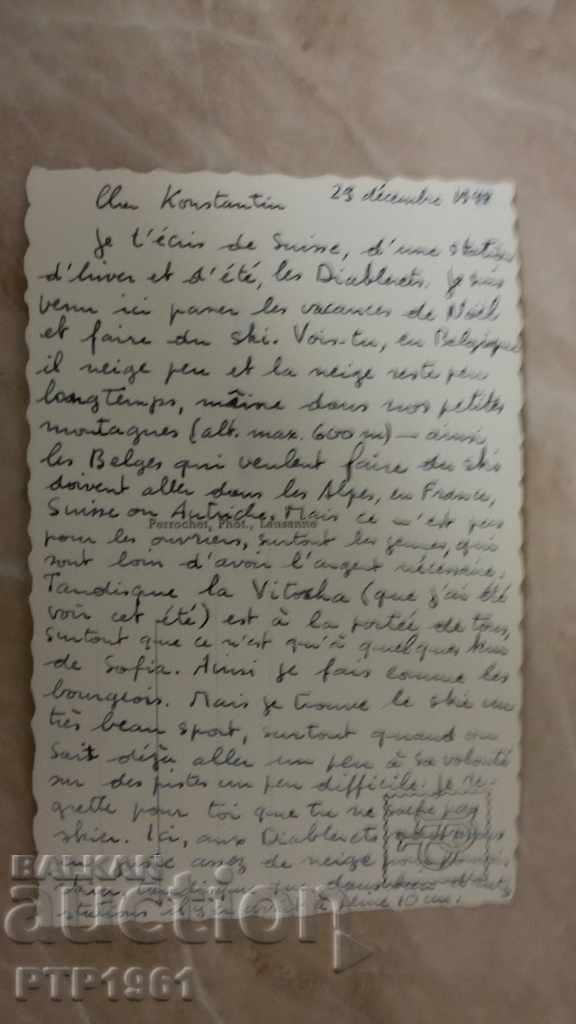 Cher Konstantin 29 décembre
Je t'écris de Suisse, d'une station
d'hiver et d'été, les Diablerets. Je suis
venu ici passer les vacances de Noël
et faire du ski. Vois-tu, en Belgique
il neige peu et la neige reste peu
longtemps, même dans nos petites
montagnes (alt. max. 600 m) — ainsi
les Belges qui veulent faire du ski
doivent aller dans les Alpes, en France,
Suisse ou Autriche. Mais ce n'est pas
Perrochet, Phot., Lausanne
pour les ouvriers, surtout les jeunes, qui
sont loin d'avoir l'argent nécessaire.
Tandisque la Vitosha (que j'ai été
voir cet été) est à la portée de tous,
surtout que ce n'est qu'à quelques km
de Sofia. Ainsi je fais comme les
bourgeois. Mais je trouve le ski un
très beau sport, surtout quand on
sait déjà aller un peu à sa volonté
sur des pistes un peu difficile. Je re-
grette pour toi que tu ne sache pas
skier. Ici, aux Diablerets
assez de neige pour
dans d'autres
stations il y a à peine 10 cm.
BALKAN
auction
PTP1961